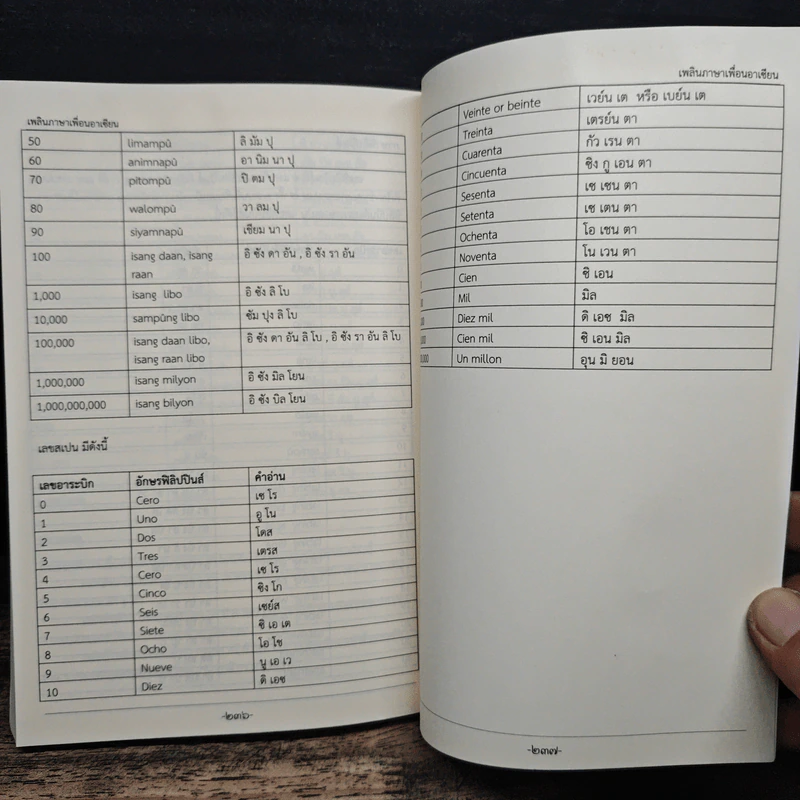 เพลินภาษาเพื่อนอาเซียน
50 limampû ลิ มัม ปุ
60 animnapû อา นิม นา ปุ
70 pitompû ปิ ตม ปุ
80 walompû วา ลม ปุ
90 siyamnapû เซียม นา ปุ
100 isang daan, isang อิ ซัง ดา อัน , อิ ซัง รา อัน
raan
1,000 isang libo อิ ซัง ลิ โบ
10,000 sampûng libo ซัม ปุง ลิ โบ
100,000 isang daan libo, อิ ซัง ดา อัน ลิ โบ , อิ ซัง รา อัน ลิ โบ
isang raan libo
1,000,000 isang milyon อิ ซัง มิล โยน
1,000,000,000 isang bilyon อิ ซัง บิล โยน
เลขสเปน มีดังนี้
เลขอาระบิก อักษรฟิลิปปินส์ คำอ่าน
0 Cero เซ โร
1 Uno อู โน
2 Dos โดส
3 Tres เตรส
4 Cero เซ โร
5 Cinco ซิง โก
6 Seis เซย์ส
7 Siete ซิ เอ เต
8 Ocho โอ โช
9 Nueve นู เอ เว
10 Diez ดิ เอซ
-๒๓๖-
เพลินภาษาเพื่อนอาเซียน
Veinte or beinte เวย์น เต หรือ เบย์น เต
Treinta เตรย์น ตา
Cuarenta กัว เรน ตา
Cincuenta ซิง กู เอน ตา
Sesenta เซ เซน ตา
Setenta เซ เตน ตา
Ochenta โอ เชน ตา
Noventa โน เวน ตา
Cien ซิ เอน
Mil มิล
Diez mil ดิ เอซ มิล
Cien mil ซิ เอน มิล
Un millon อุน มิ ยอน
-๒๓๗-